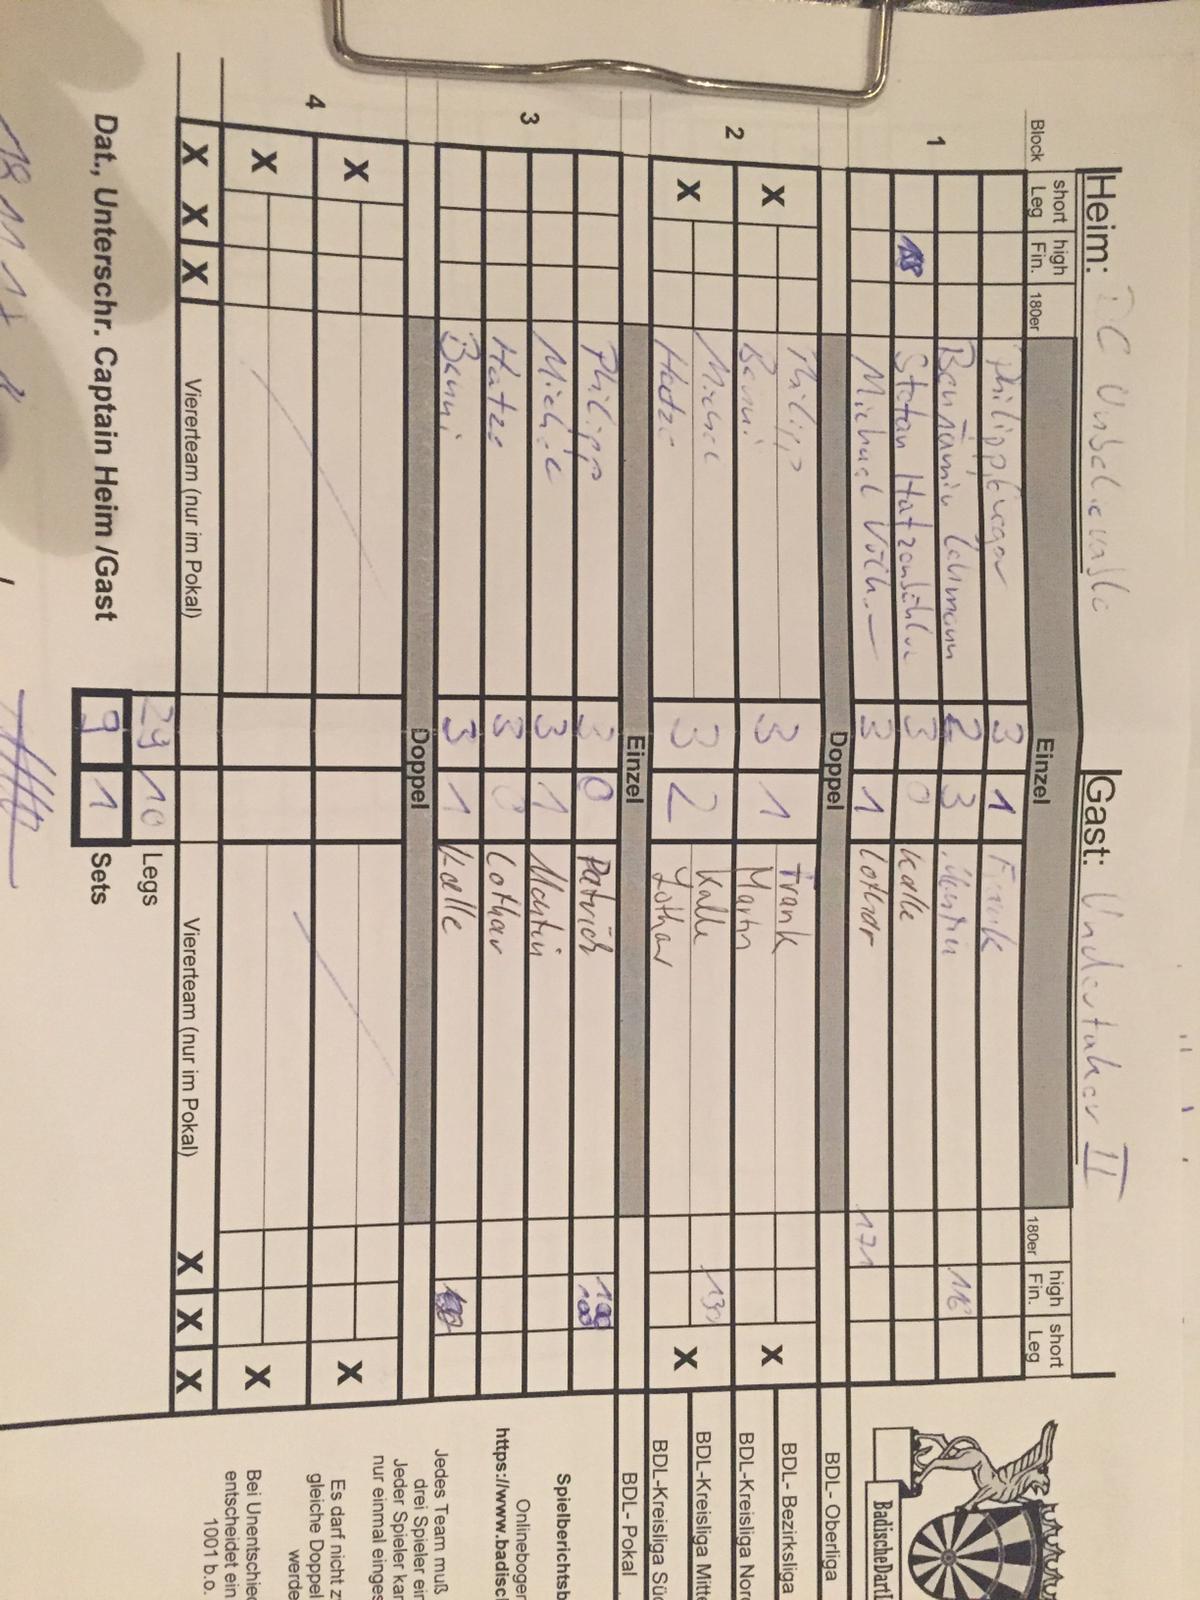 Heim: DC Unbelievable Gast: Undertaker II
Block short Leg high Fin. 180er Einzel 180er high Fin. short Leg
1
Philipp 3 1 Frank
Benjamin Lehmann 2 3 Martin 116
Stefan 3 0 Kalle
Michael 3 1 Lothar 171
Doppel
2
X Philipp 3 1 Frank X
Benni Martin
X Michel 3 2 Kalle X
Hatze Lothar
Einzel
3
Philipp 3 0 Patrick 100
Michel 3 1 Martin
Hatze 3 0 Lothar
Benni 3 1 Kalle
Doppel
4
X X
X X
X X X Viererteam (nur im Pokal) Viererteam (nur im Pokal) X X X
29 10 Legs
Dat., Unterschr. Captain Heim /Gast 9 1 Sets
18 11 17
BadischeDartL
BDL- Oberliga
BDL- Bezirksliga
BDL-Kreisliga Nord
BDL-Kreisliga Mitte
BDL-Kreisliga Sü
BDL- Pokal
Spielberichtsb
Onlinebogen
https://www.badisc
Jedes Team muß
drei Spieler ein
Jeder Spieler kan
nur einmal einges
Es darf nicht z
gleiche Doppel
werde
Bei Unentschied
entscheidet ein
1001 b.o.